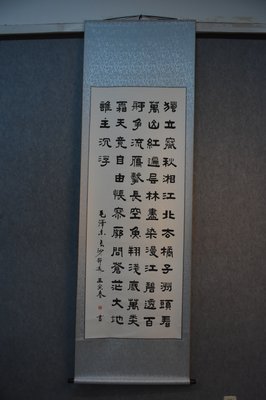 獨立寒秋湘江北去橘子洲頭看
萬山紅遍層林盡染漫江碧透百
舸争流鷹擊長空魚翔淺底萬類
霜天竞自由悵寥廓問蒼茫大地
誰主沉浮
毛澤东长沙 書